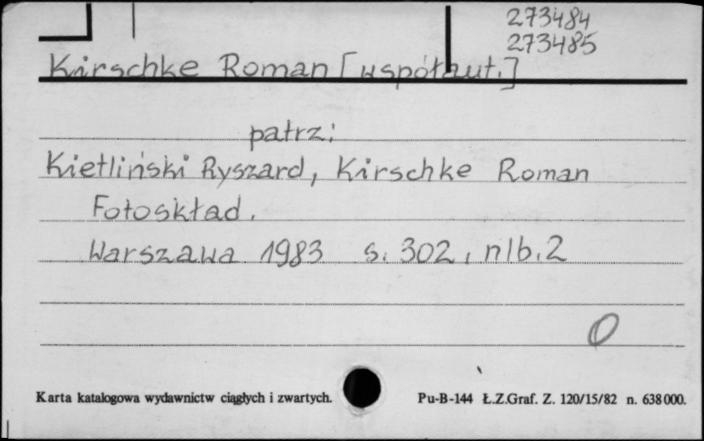 273484
273485
Kirschke Roman [współaut.]
patrz:
Kietliński Ryszard, Kirschke Roman
Fotoskład.
Warszawa 1983 s. 302, nlb. 2
0
Karta katalogowa wydawnictw ciągłych i zwartych. Pu-B-144 Ł.Z.Graf. Z. 120/15/82 n. 638000.